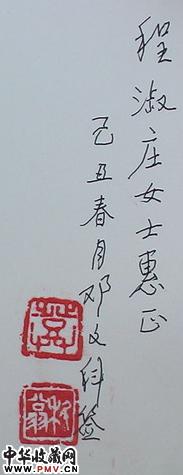 程淑庄女士惠正
己丑春月邓文科签
中华收藏网
www.PMV.cn